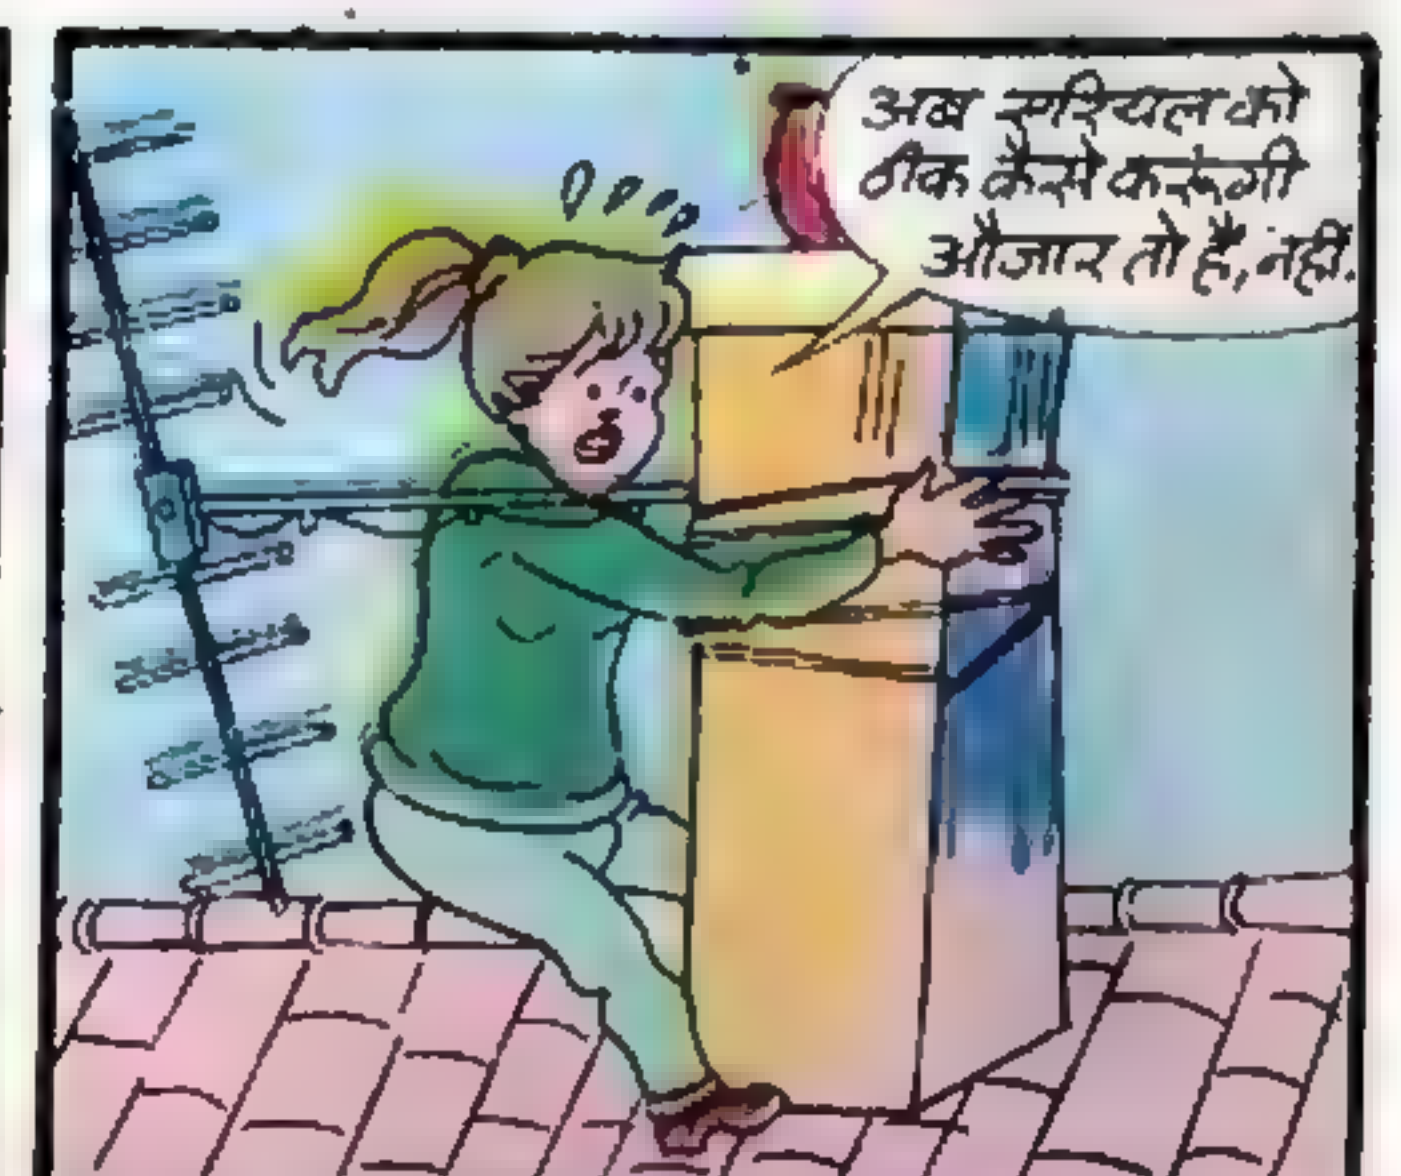 अब एरियल को
ठीक कैसे करूंगी
औजार तो है, नहीं.